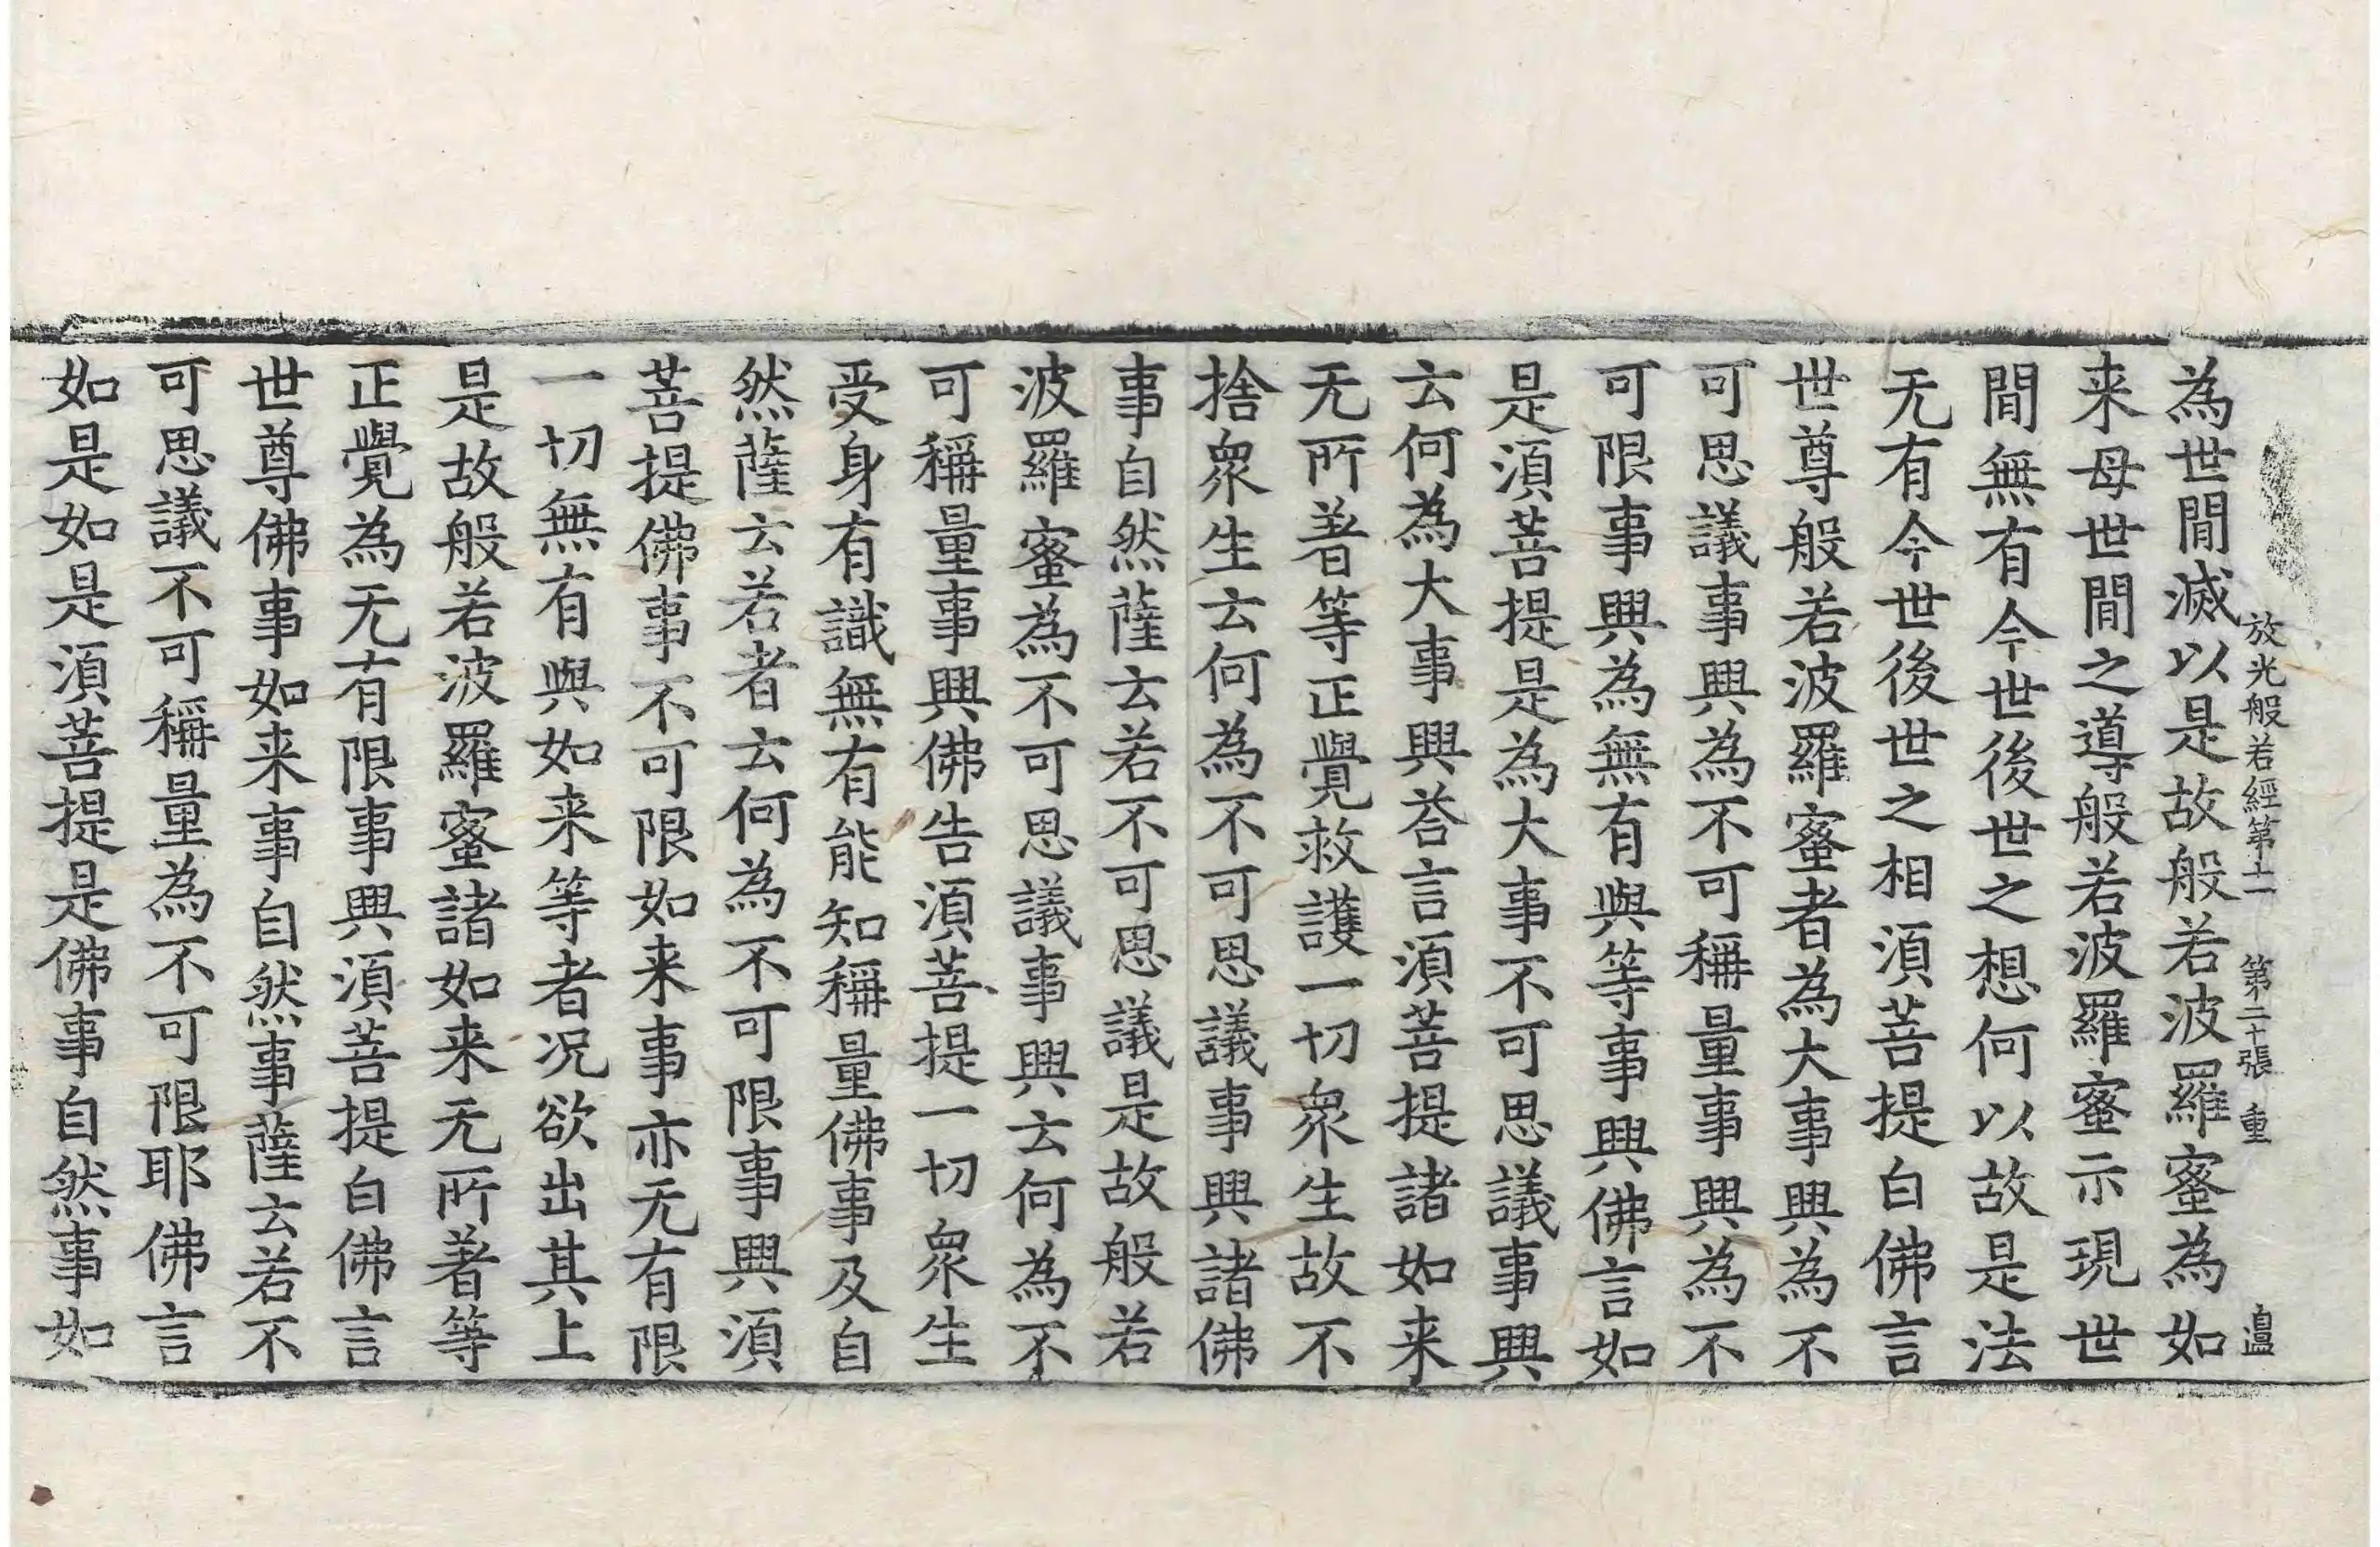 放光般若經第十一 第二十張 重
為世閒滅以是故般若波羅蜜為如
来母世閒之導般若波羅蜜示現世
閒無有今世後世之想何以故是法
无有今世後世之相湏菩提白佛言
世尊般若波羅蜜者為大事興為不
可思議事興為不可稱量事興為不
可限事興為無有與等事興佛言如
是湏菩提是為大事不可思議事興
云何為大事興荅言湏菩提諸如来
无所著等正覺救護一切衆生故不
捨衆生云何為不可思議事興諸佛
事自然薩云若不可思議是故般若
波羅蜜為不可思議事興云何為不
可稱量事興佛告湏菩提一切衆生
受身有識無有能知稱量佛事及自
然薩云若者云何為不可限事興湏
菩提佛事不可限如来事亦无有限
一切無有與如来等者况欲出其上
是故般若波羅蜜諸如来无所著等
正覺為无有限事興湏菩提白佛言
世尊佛事如来事自然事薩云若不
可思議不可稱量為不可限耶佛言
如是如是湏菩提是佛事自然事如